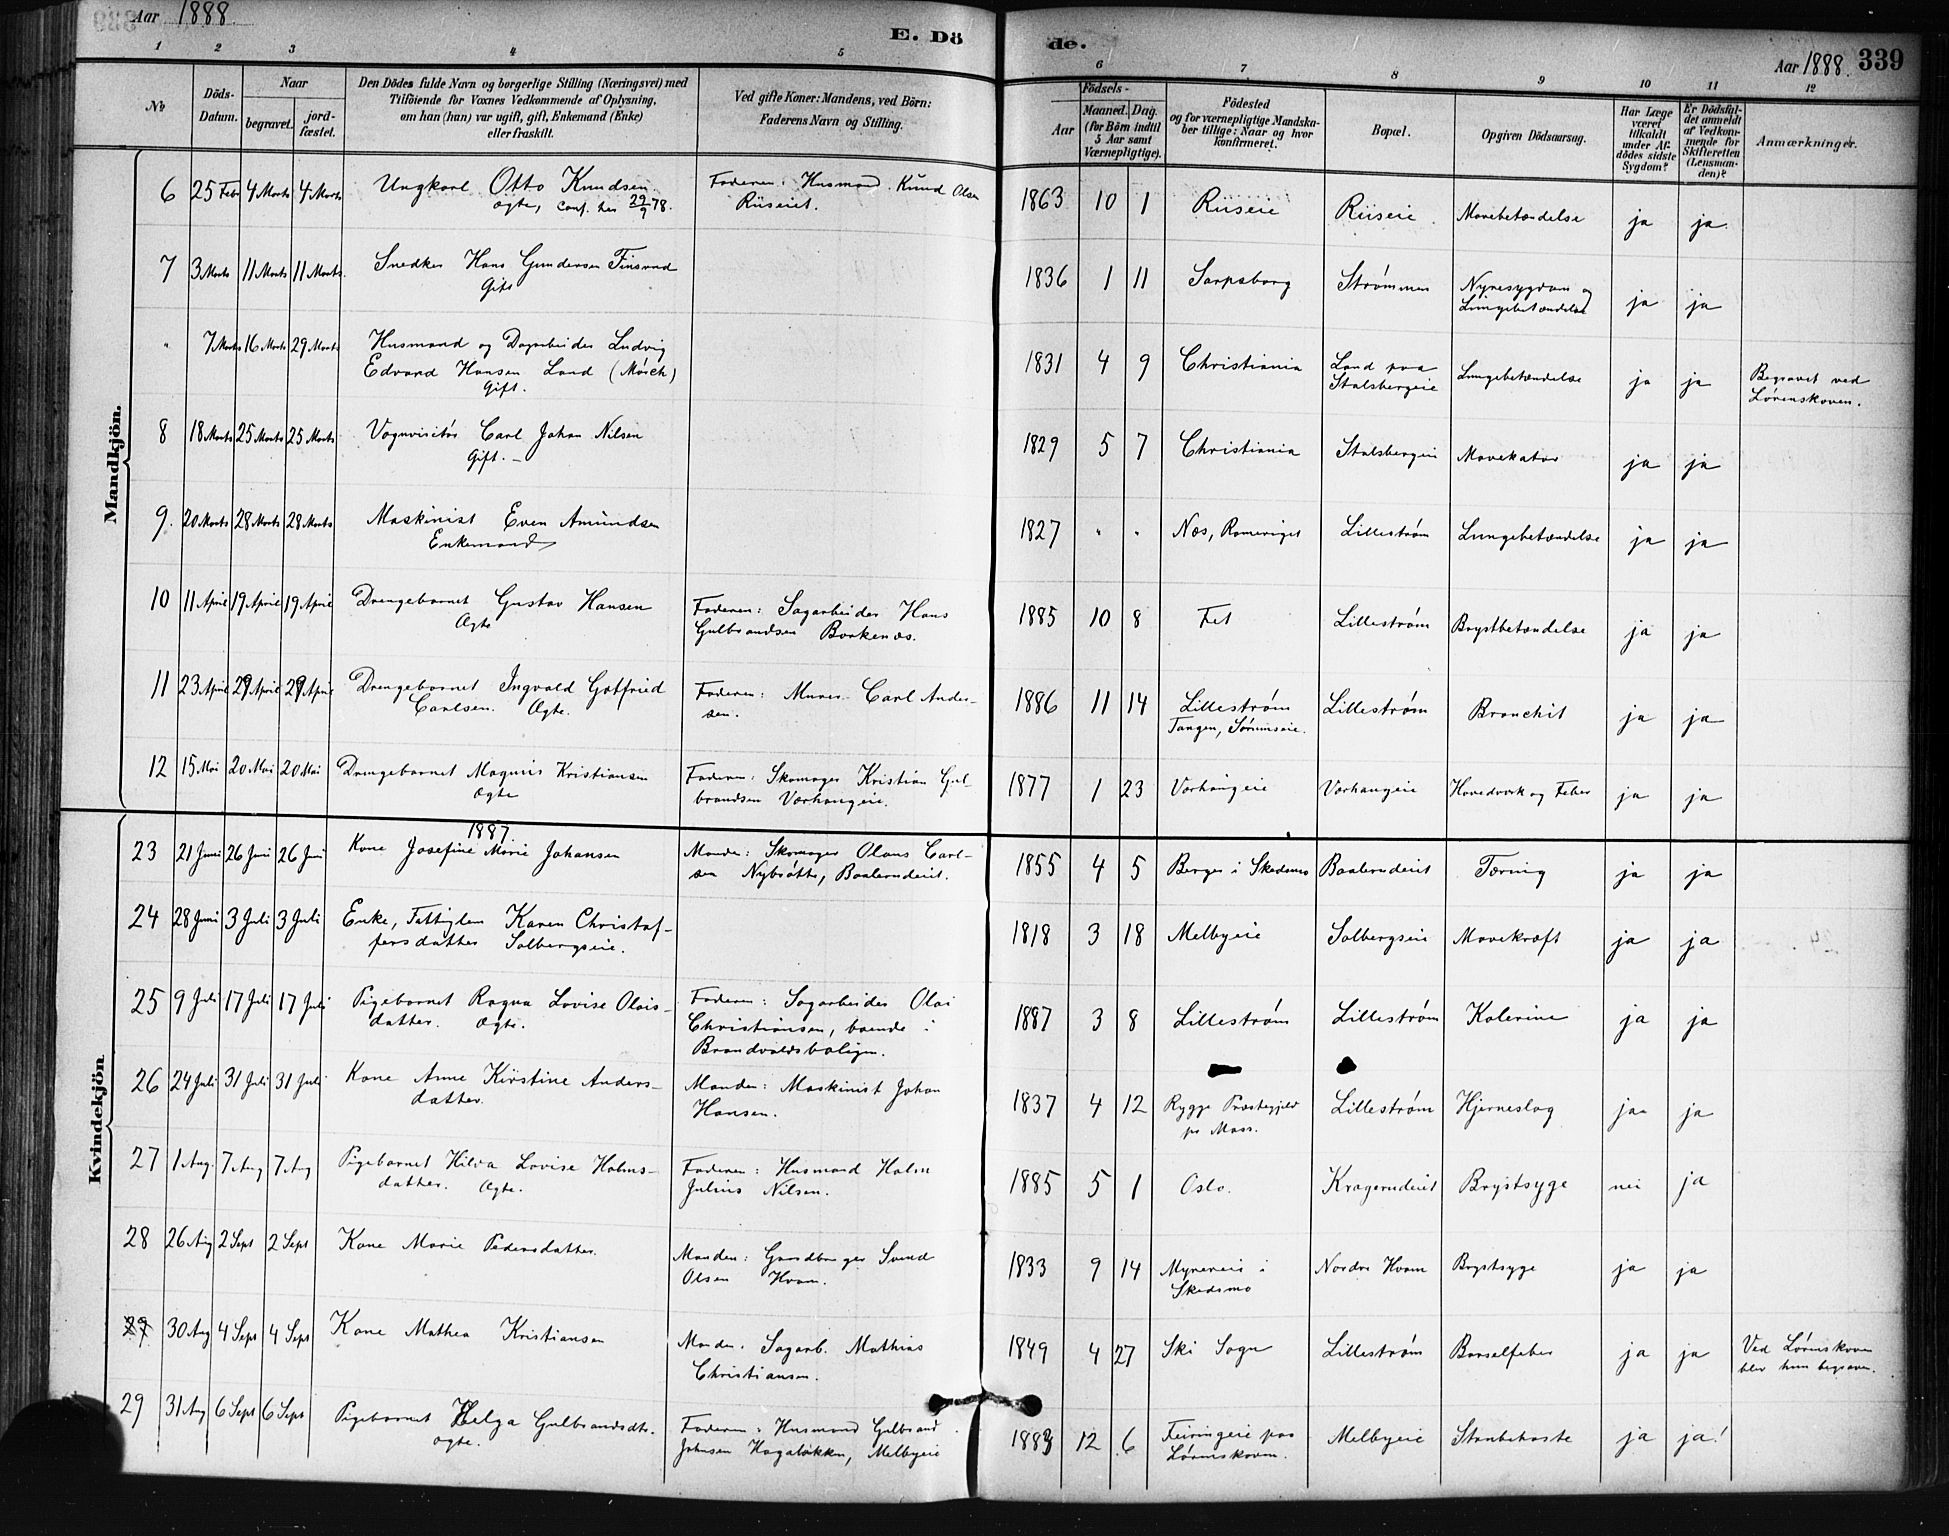 Aar 1888.
E. Dö
de.
Aar 1888.
339
1 2 3 4 5 6 7 8 9 10 11 12
No
Döds-Datum.
Naar
begravet.
jord-fæstet.
Den Dödes fulde Navn og borgerlige Stilling (Næringsvei) med
Tilföiende for Voxnes Vedkommende af Oplysning,
om han (hun) var ugift, gift, Enkemand (Enke)
eller fraskilt.
Ved gifte Koner: Mandens, ved Börn:
Faderens Navn og Stilling.
Födsels-
Aar
Maaned. Dag.
(for Börn indtil
5 Aar samt
Værnepligtige).
Födested
og for værnepligtige Mandska-
ber tillige: Naar og hvor
konfirmeret.
Bopæl.
Opgiven Dödsaarsag.
Har Læge
været
tilkaldt
under Af-
dödes sidste
Sygdom?
Er Dödsfal-
det anmeldt
af Vedkom-
mende for
Skifteretten
(Lensman-
den)?
Anmærkninger.
Mandkjön.
6 25 Febr 4 Marts 4 Marts Ungkarl Otto Knudsen Faderen: Husmand Knud Olsen 1863 10 1 Riiseie Riiseie Mavebetændelse ja ja
ægte, conf. her 29/9 78. Riiseiet.
7 3 Marts 11 Marts 11 Marts Snedker Hans Gundersen Finsrud 1836 1 11 Sarpsborg Strømmen Nyresygdom og ja ja
Gift Lungebetændelse
" 7 Marts 16 Marts 29 Marts Husmand og Dagarbeider Ludvig 1831 4 9 Christiania Land paa Lungebetændelse ja ja Begravet ved
Edvard Hansen Land (Mørch) Stalsbergeie Lørenskoven.
Gift.
8 18 Marts 25 Marts 25 Marts Vognvisitør Carl Johan Nilsen 1829 5 7 Christiania Stalsbergeie Mavekatar ja ja
Gift. –
9. 20 Marts 28 Marts 28 Marts Maskinist Even Amundsen 1827 " " Næs, Romeriget Lillestrøm Lungebetændelse ja ja
Enkemand
10 11 April 19 April 19 April Drengebarnet Gustav Hansen Faderen: Sagarbeider Hans 1885 10 8 Fet Lillestrøm Brystbetændelse ja ja
Ægte Gulbrandsen Borkenæs.
11 23 April 29 April 29 April Drengebarnet Ingvald Gotfried Faderen: Murer Carl Ander- 1886 11 14 Lillestrøm Lillestrøm Bronchit ja ja
Carlsen. Ægte. sen. Tangen, Sørumseie.
12 15 Mai 20 Mai 20 Mai Drengebarnet Magnus Kristiansen Faderen: Skomager Kristian Gul- 1877 1 23 Vorhaugeie Vorhaugeie Hovedværk og Feber ja ja
ægte brandsen Vorhaugeie.
Kvindekjön
1887.
23 21 Juni 26 Juni 26 Juni Kone Josefine Marie Johansen Manden: Skomager Olaus Carl- 1855 4 5 Berger i Skedsmo Baalerudeiet Tæring ja ja
sen Nybråtte, Baalerudeiet.
24 28 Juni 3 Juli 3 Juli Enke, Fattiglem Karen Christof- 1818 3 18 Melbyeie Solbergseie Mavekræft ja ja
fersdatter Solbergseie.
25 9 Juli 17 Juli 17 Juli Pigebarnet Ragna Lovise Olais- Faderen: Sagarbeider Olai 1887 3 8 Lillestrøm Lillestrøm Kolerine ja ja
datter. Ægte. Christiansen, boende i
Brandvoldsboligen.
26 24 Juli 31 Juli 31 Juli Kone Anne Kirstine Anders- Manden: Maskinist Johan 1837 4 12 Rygge Præstegjeld Lillestrøm Hjerneslag ja ja
datter. Hansen. pr Moss.
27 1 Aug. 7 Aug 7 Aug Pigebarnet Hilda Lovise Holms- Faderen: Husmand Holm 1885 5 1 Oslo. Kragerudeiet Brystsyge nei ja
datter. Ægte. Julius Nilsen.
28 26 Aug 2 Sept 2 Sept Kone Marie Pedersdatter. Manden: Gaardbruger Svend 1833 9 14 Myrereie i Nordre Hvam Brystsyge ja ja
Olsen Hvam. Skedsmo
29 30 Aug 4 Sept 4 Sept Kone Mathea Kristiansen Manden: Sagarb. Mathias 1849 4 27 Ski Sogn Lillestrøm Barselfeber ja ja Ved Lørenskoven
Christiansen. blev hun begraven.
29 31 Aug 6 Sept 6 Sept Pigebarnet Helga Gulbrandsdtr. Faderen: Husmand Gulbrand 1883 12 6 Feiringeie paa Melbyeie Strubehoste ja ja!
ægte. Johnsen Hagaløkken, Melbyeie Lørenskoven.